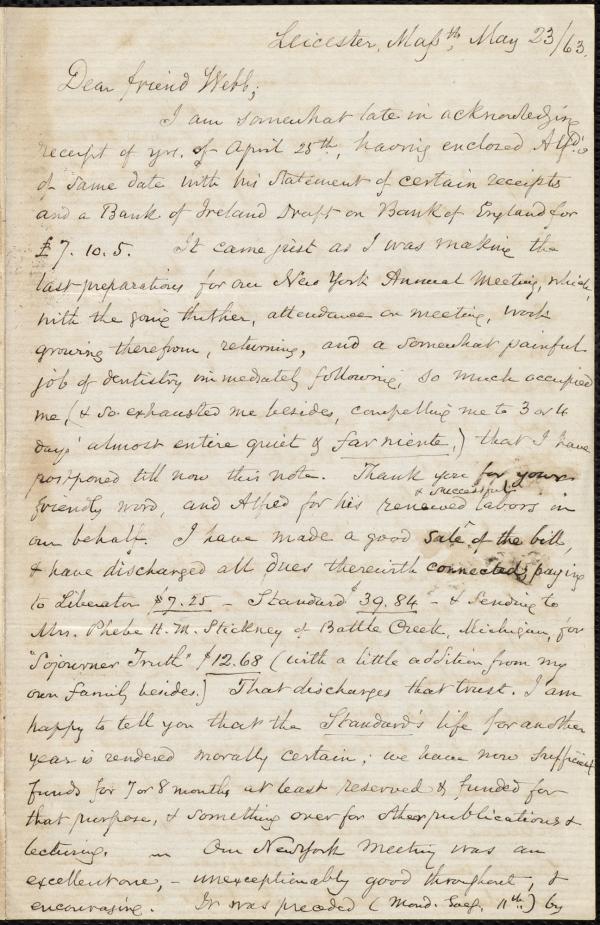 Leicester, Mass. th, May 23/63.
Dear friend Webb;
I am somewhat late in acknowledging
receipt of yrs. of April 25th, having enclosed Alfd's
of same date with his statement of certain receipts
and a Bank of Ireland Draft on Bank of England for
£7. 10. 5. It came just as I was making the
last preparations for our New York Annual Meeting, which,
with the going thither, attendance on meeting, work
growing therefrom, returning, and a somewhat painful
job of dentistry immediately following, so much occupied
me, (& so exhausted me besides, compelling me to 3 or 4
days' almost entire quiet & far niente,) that I have
postponed till now this note. Thank you for your
friendly word, and Alfred for his renewed & successful labors in
our behalf. I have made a good sale of the bill,
& have discharged all dues therewith connected; paying
to Liberator $7.25 – Standard $39.84 – & sending to
Mrs. Phebe H. M. Stickney of Battle Creek, Michigan, for
"Sojourner Truth" $12.68 (with a little addition from my
own family besides.) That discharges that trust. I am
happy to tell you that the Standard's life for another
year is rendered morally certain; we have now sufficient
funds for 7 or 8 months at least reserved & funded for
that purpose, & something over for other publications &
lecturing. — Our New York meeting was an
excellent one, – unexceptionably good throughout, &
encouraging. It was preceded (Mond. 11th.) by